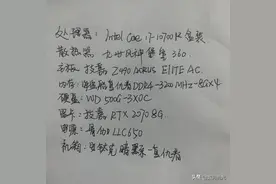 处理器：Intel Core i7-10700K 盒装
散热器：九州风神堡垒360
主板：技嘉Z490 AORUS ELITE AC
内存：复仇者DDR4-3200MHz-8GX4
硬盘：WD 500G-3X0C
显卡：技嘉 RTX 2070 8G
电源：LLC650
机箱：复仇者